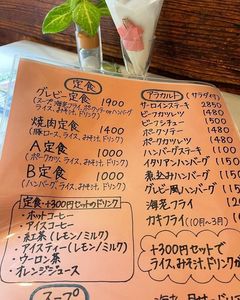 定食
グレビー定食 1900
(スープ、海老フライ、ポークソテーorハンバーグ
ライス、みそ汁、ドリンク)
焼肉定食 1400
(豚ロース、ライス、みそ汁、ドリンク)
A定食 1000
(ポークカツ、ライス、みそ汁、ドリンク)
B定食 1000
(ハンバーグ、ライス、みそ汁、ドリンク)
定食・+300円セットのドリンク
・ホットコーヒー
・アイスコーヒー
・紅茶(レモン/ミルク)
・アイスティー(レモン/ミルク)
・ウーロン茶
・オレンジジュース
スープ
アラカルト (サラダ付)
サーロインステーキ 2850
ビーフカツレツ
ビーフシチュー
ポークソテー
ポークカツレツ
ハンバーグステーキ
イタリアンハンバーグ (150
煮込みハンバーグ (150
グレビー風ハンバーグ
海老フライ
カキフライ (10月〜3月)
+300円セットで
ライス、みそ汁、ドリンクが